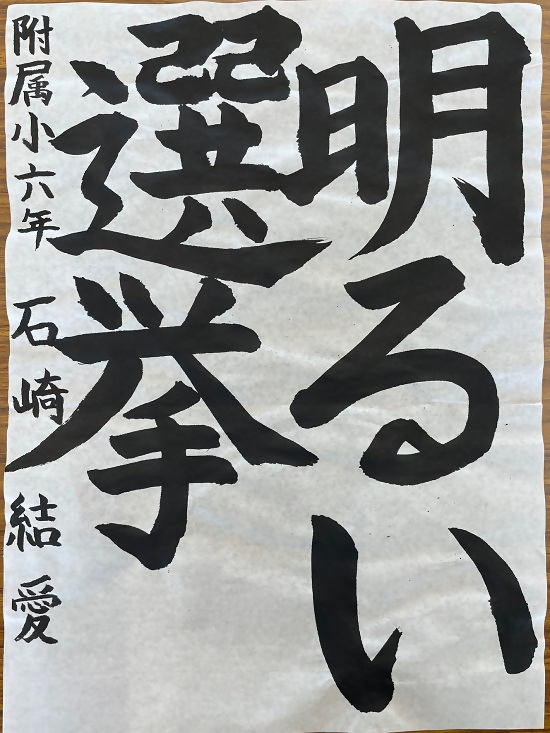 明るい
選挙
附属小六年 石崎結愛